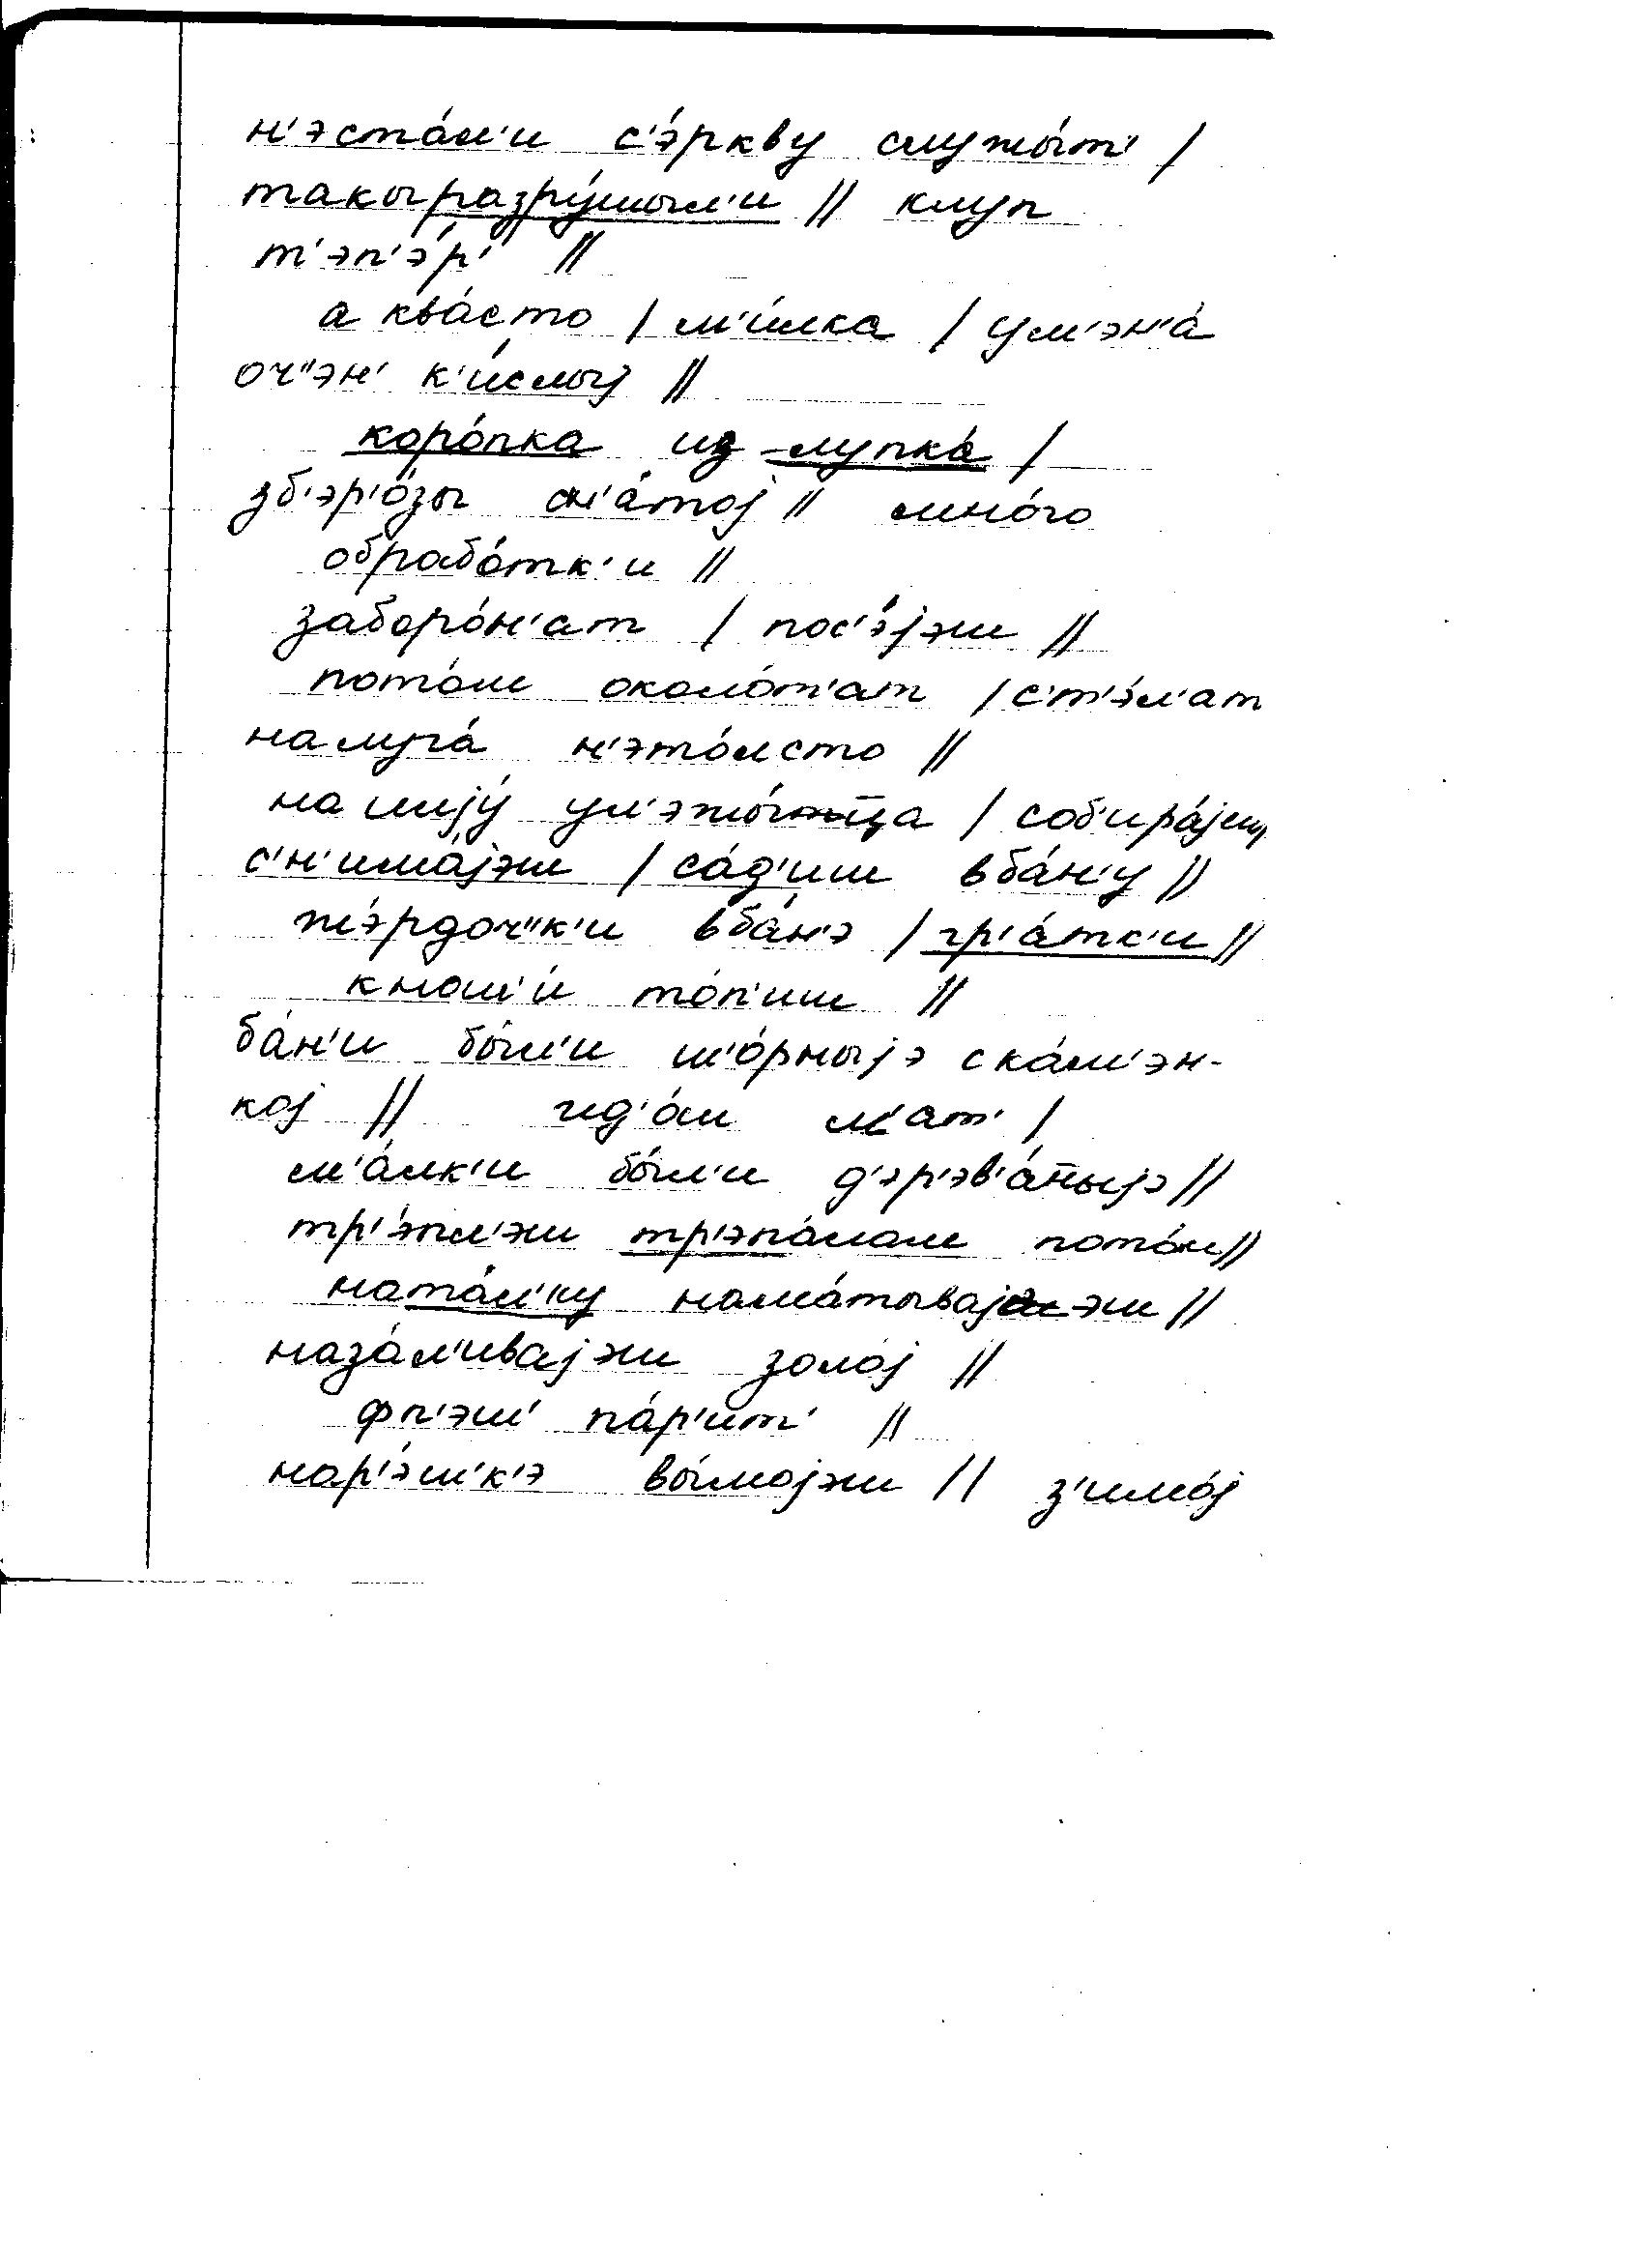 н'эста́л'и с'э́ркву служы́т' /
такыразру́шыл'и // клуп
т'эп'э́р' //
а ква́сто / м'и́лка / ум'эн'а́
оч"эн' к'и́слыj //
коро́пка из лупка́ /
зб'эр'о́зы сн'а́тоj // мно́го
обрабо́тк'и //
заборо́н'ат / пос'э́jэш //
пото́м около́т'ат / с'т'э́л'ат
налуга́ н'это́лсто //
на шиjу́ ул'эжы́тца / соб'ира́jэш,
с'н'има́jэш / са́д'иш вба́н'у //
жэ́рдоч"к'и вба́н'э / гр'а́тк'и //
кноч'и́ то́п'иш //
ба́н'и бы́л'и ч'о́рныjэ ска́м'эн-
коj // ид'о́ш м'ат' /
м'а́лк'и бы́л'и д'эр'эв'а́ныjэ //
тр'э́пл'эш тр'эпа́лам пото́м //
ната́л'ку нама́тываjэш //
наза́л'иваjэш золо́j //
фп'эч' па́р'ит' //
нар'э́ч'к'э вы́моjэш // з'имо́j